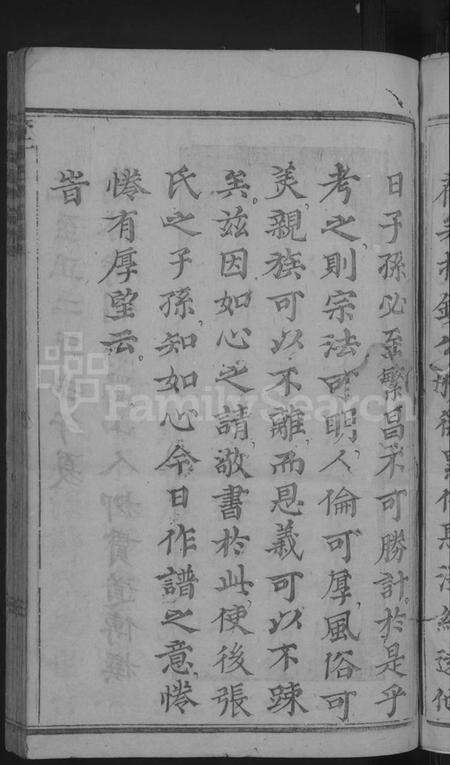 日子孫必至繁昌不可勝計於是乎
考之則宗法可明人倫可厚風俗可
美親族可以不離而恩義可以不踈
矣茲因如心之請敬書於此使後張
氏之子孫知如心今日作譜之意惓
惓有厚望云
旹
FamilySearch